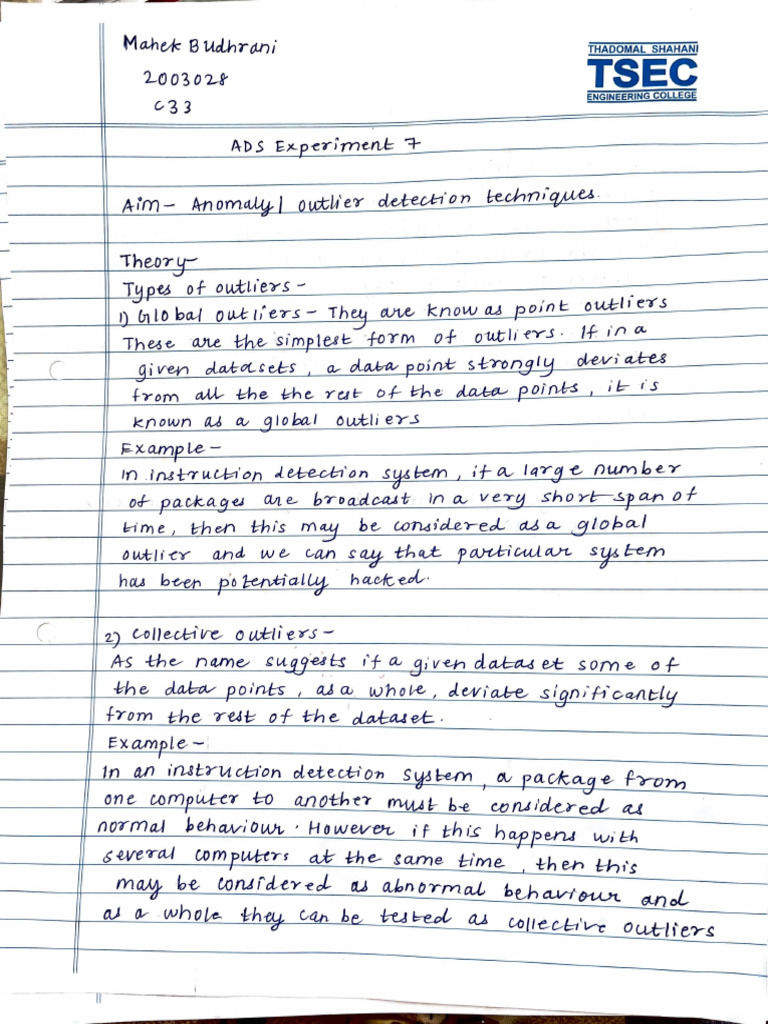 Mahek Budhrani
2003028
C33
THADOMAL SHAHANI
TSEC
ENGINEERING COLLEGE
ADS Experiment 7
Aim- Anomaly| outlier detection techniques.
Theory-
Types of outliers -
1) Global outliers - They are know as point outliers
These are the simplest form of outliers. If in a
given datasets, a data point strongly deviates
from all the the rest of the data points, it is
known as a global outliers
Example -
In instruction detection system, if a large number
of packages are broadcast in a very short span of
time, then this may be considered as a global
outlier and we can say that particular system
has been potentially hacked.
2) collective outliers -
As the name suggests if a given dataset some of
the data points, as a whole, deviate significantly
from the rest of the dataset.
Example -
In an instruction detection system, a package from
one computer to another must be considered as
normal behaviour. However if this happens with
several computers at the same time, then this
may be considered as abnormal behaviour and
as a whole they can be tested as collective outliers